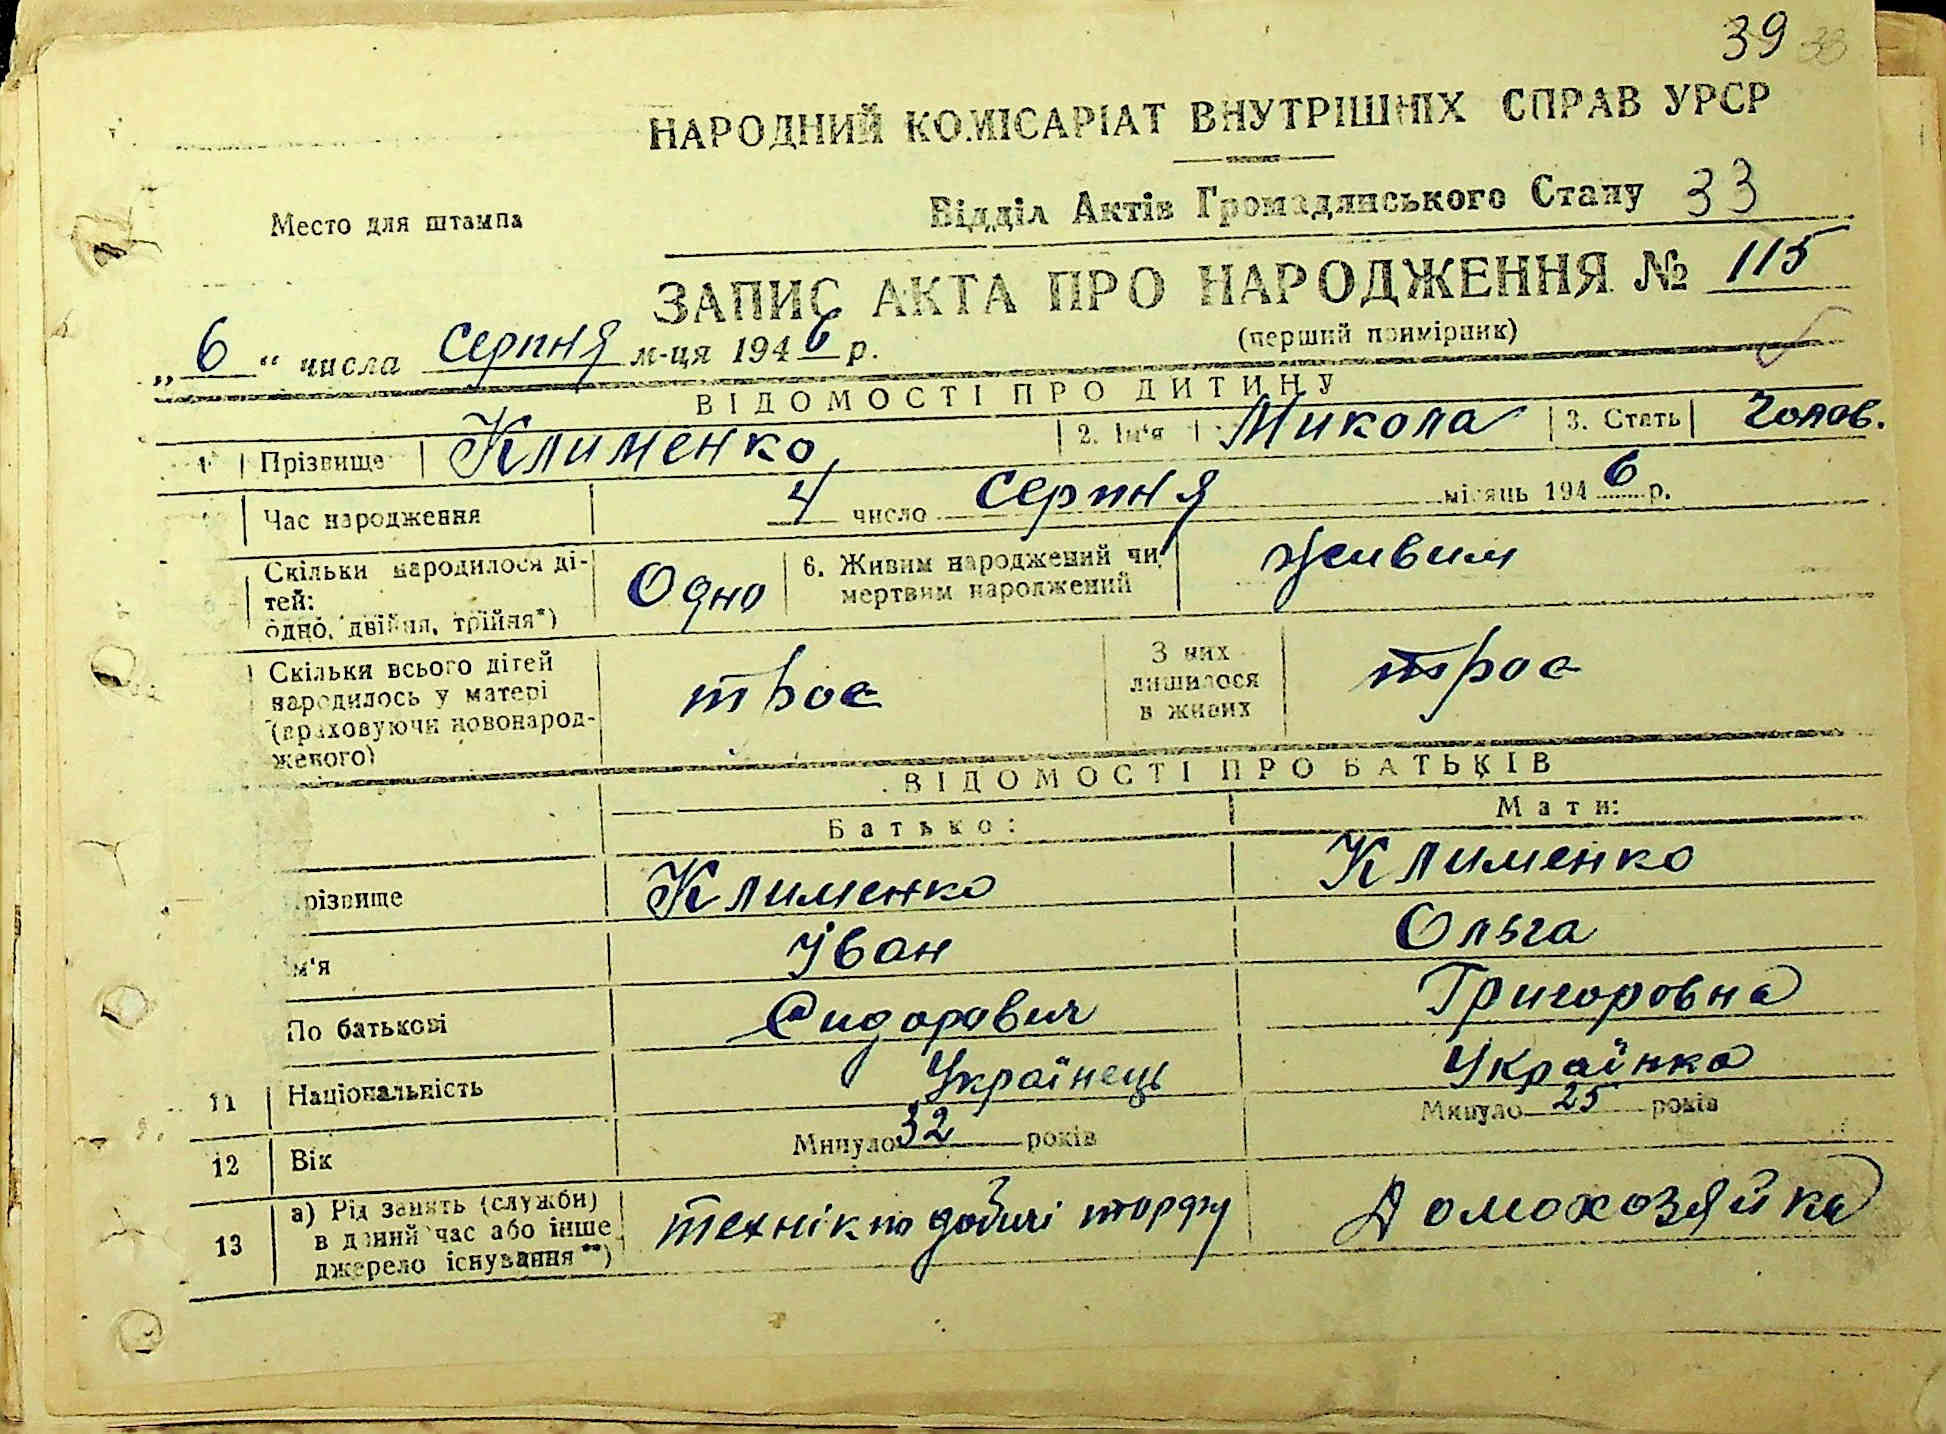 39 33
НАРОДНИЙ КОМІСАРІАТ ВНУТРІШНІХ СПРАВ УРСР
Место для штампа
Відділ Актів Громадянського Стану 33
ЗАПИС АКТА ПРО НАРОДЖЕННЯ № 115
(перший примірник)
„6“ числа серпня м-ця 1946 р.
ВІДОМОСТІ ПРО ДИТИНУ
1 Прізвище Клименко 2. Ім'я Микола 3. Стать Чолов.
Час народження 4 число серпня місяць 1946 р.
Скільки народилося ді-
тей:
одно, двійня, трійня*)
Одно
6. Живим народжений чи
мертвим народжений
живим
Скільки всього дітей
народилось у матері
(враховуючи новонарод-
женого)
троє
З них
лишилося
в живих
троє
ВІДОМОСТІ ПРО БАТЬКІВ
Батько: Мати:
різвище Клименко Клименко
м'я Іван Ольга
По батькові Сидорович Григоровна
11 Національність Українець Українка
12 Вік Минуло 32 років Минуло 25 років
13 а) Рід занять (служби)
в даний час або інше
джерело існування**)
технік по добичі торфу Домохозяйка